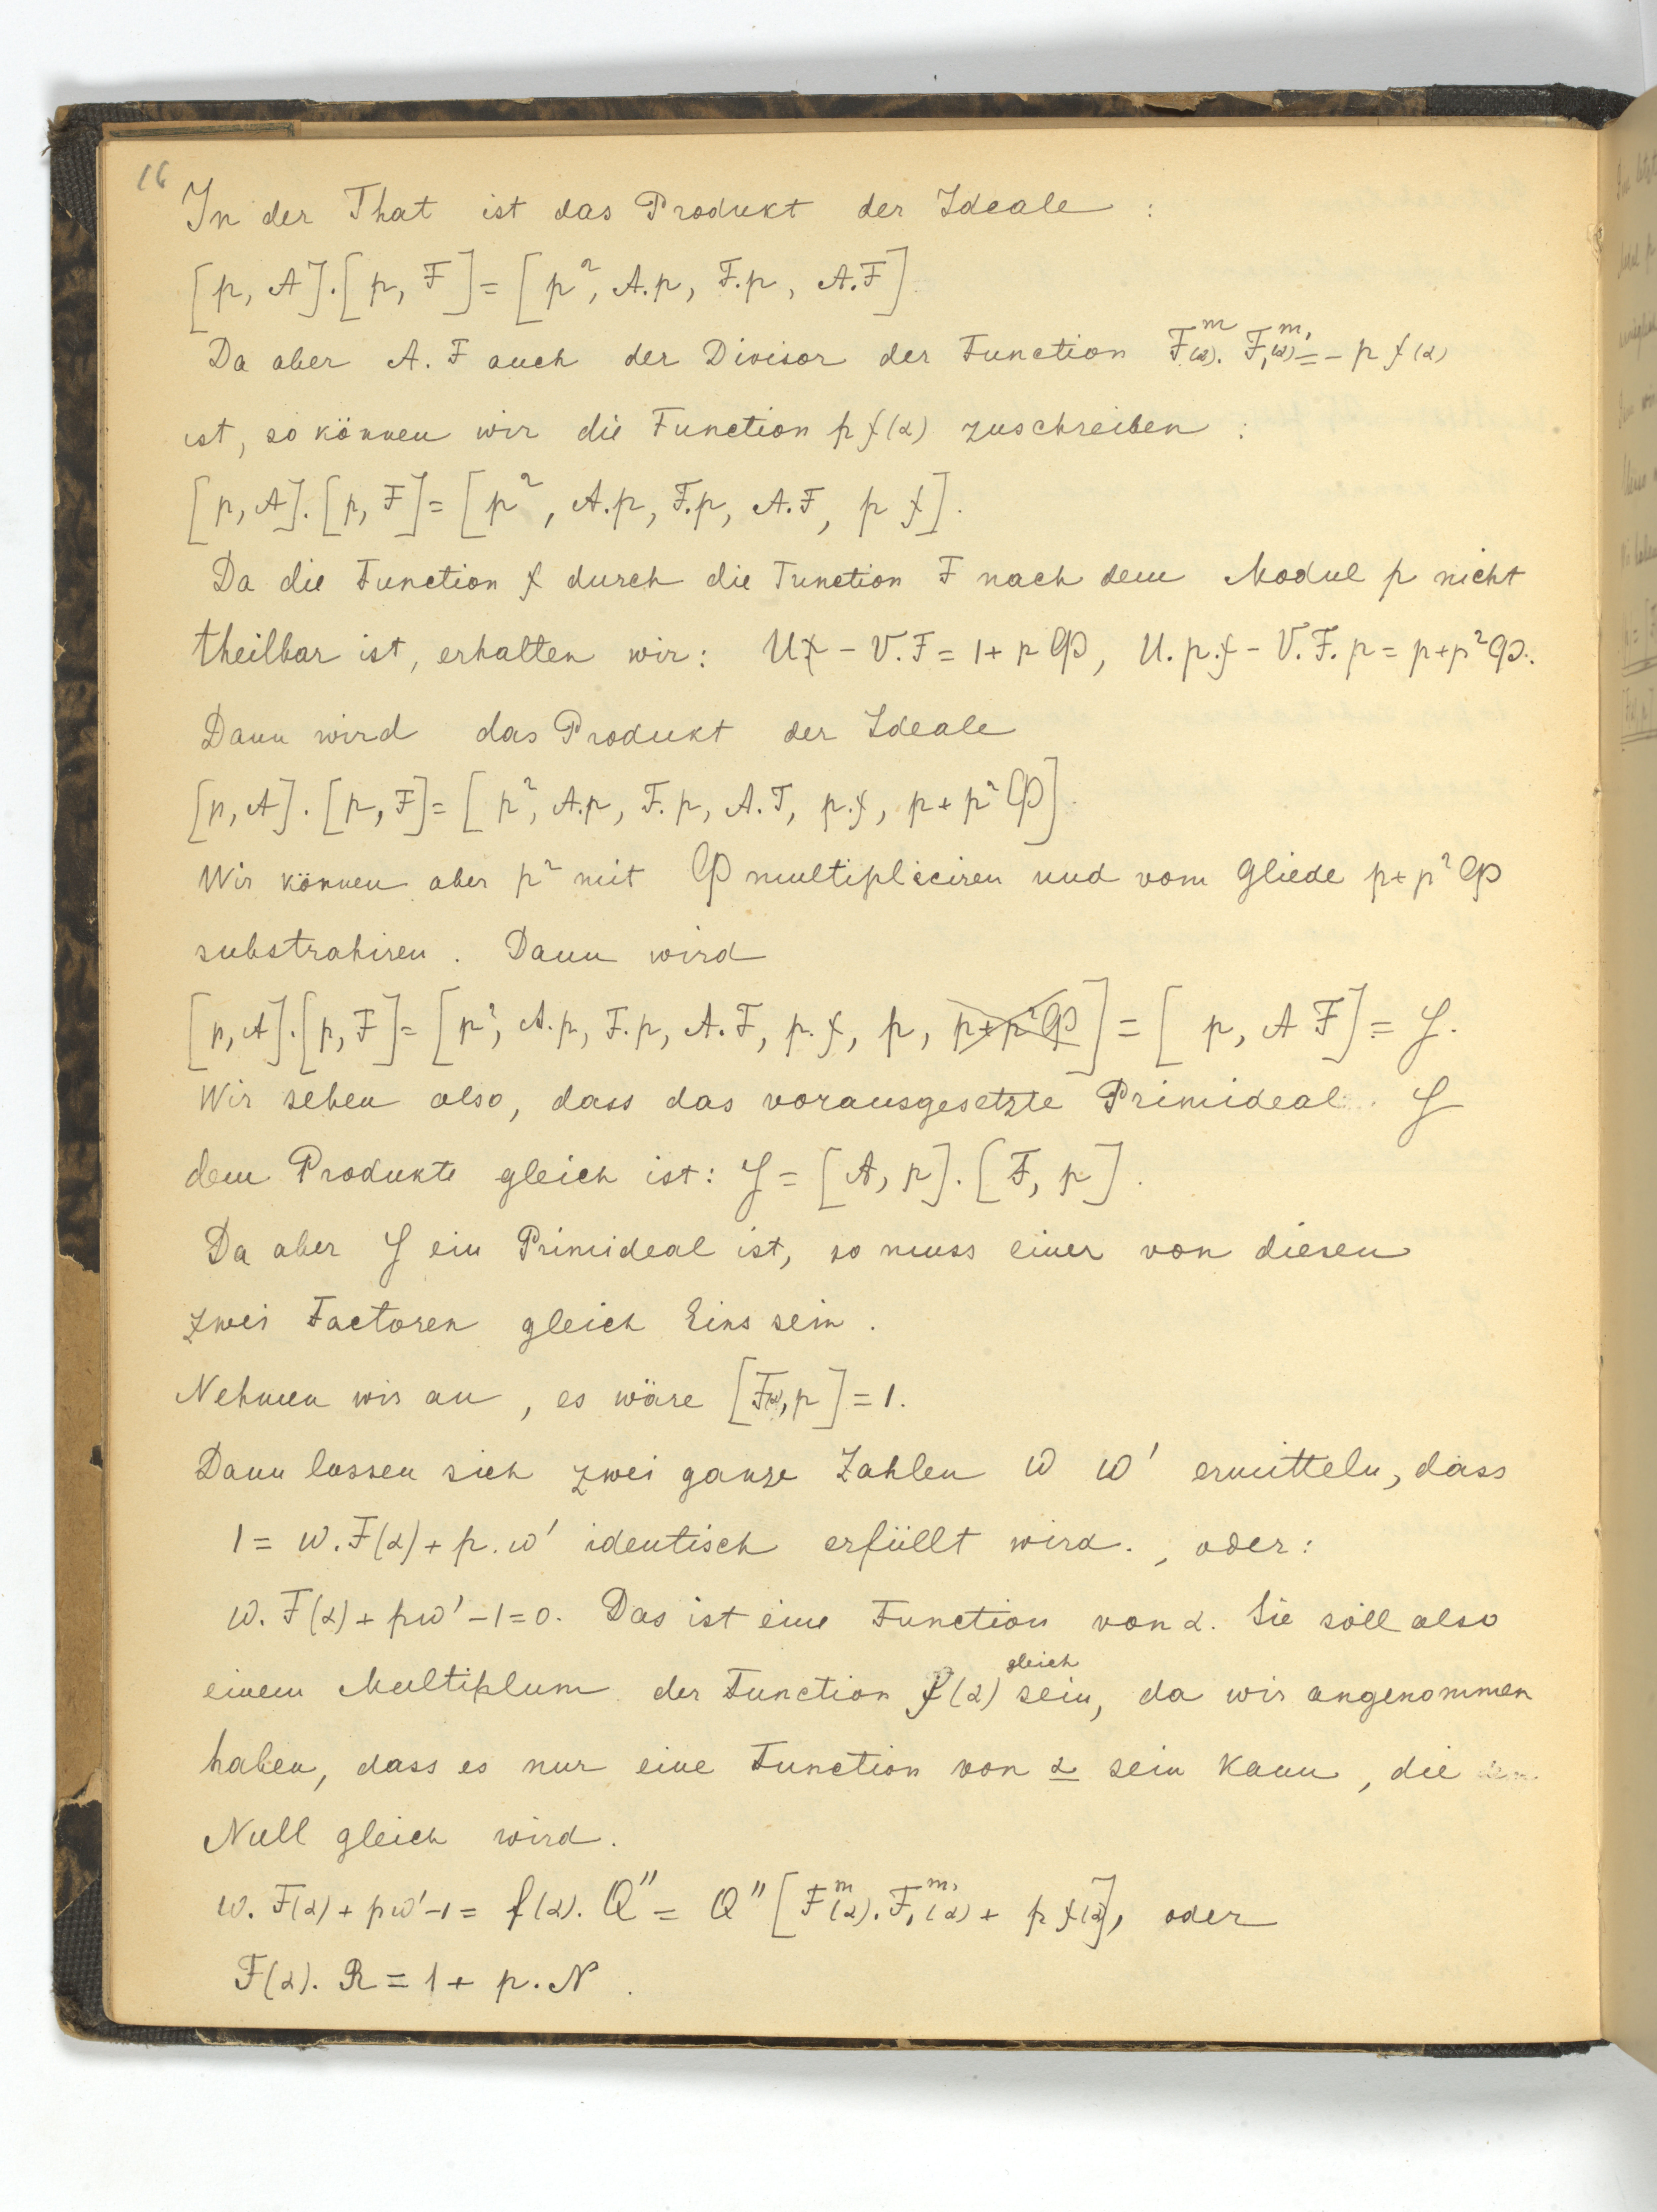 16
In der That ist das Produkt der Ideale :
[p, A].[p, F] = [p², A.p, F.p, A.F]
Da aber A.F auch der Divisor der Function F^m(α). F₁^m₁(α) = - p f(α)
ist, so können wir die Function p f(α) zuschreiben :
[p, A].[p, F] = [p², A.p, F.p, A.F, p f].
Da die Function f durch die Function F nach dem Modul p nicht
theilbar ist, erhalten wir: Uf - V.F = 1 + p φ, U.p.f - V.F.p = p + p² φ.
Dann wird das Produkt der Ideale
[p, A].[p, F] = [p², A.p, F.p, A.F, p.f, p + p² φ].
Wir können aber p² mit φ multipliciren und vom Gliede p + p² φ
substrahiren. Dann wird
[p, A].[p, F] = [p², A.p, F.p, A.F, p.f, p, p + p² φ] = [p, A F] = 𝒥.
Wir sehen also, dass das vorausgesetzte Primideal 𝒥
dem Produkte gleich ist: 𝒥 = [A, p].[F, p].
Da aber 𝒥 ein Primideal ist, so muss einer von diesen
zwei Factoren gleich Eins sein.
Nehmen wir an, es wäre [F(α), p] = 1.
Dann lassen sich zwei ganze Zahlen ω ω' ermitteln, dass
1 = ω.F(α) + p.ω' identisch erfüllt wird., oder:
ω.F(α) + pω' - 1 = 0. Das ist eine Function von α. Sie soll also
einem Multiplum der Function f(α) gleich sein, da wir angenommen
haben, dass es nur eine Function von α sein kann, die
Null gleich wird.
ω.F(α) + pω' - 1 = f(α). Q'' = Q'' [F^m(α). F₁^m₁(α) + p f(α)], oder
F(α). R = 1 + p. N.